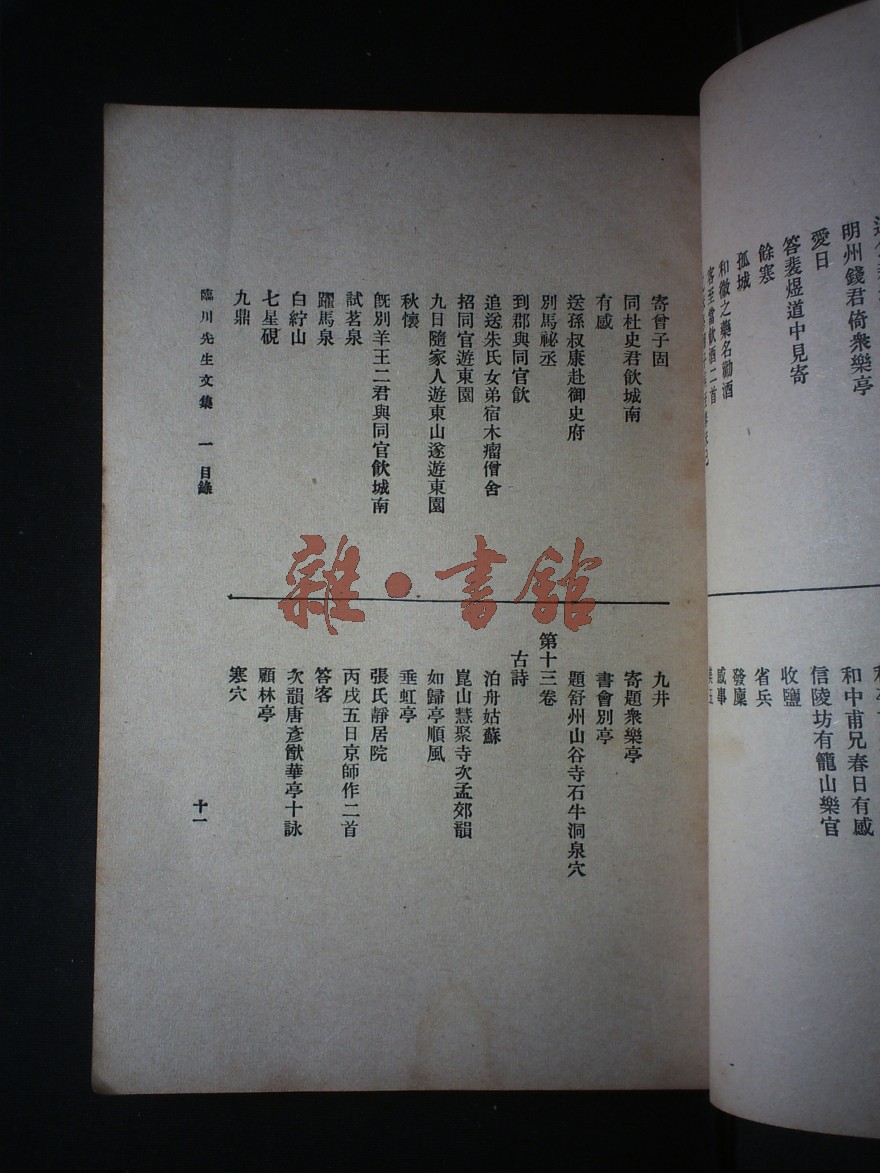 明州錢君倚衆樂亭
愛日
答裴煜道中見寄
餘寒
孤城
和微之藥名勸酒
客至當飲酒二首
和中甫兄春日有感
信陵坊有籠山樂官
收鹽
省兵
發廩
感事
寄曾子固
同杜史君飲城南
有感
送孫叔康赴御史府
別馬祕丞
到郡與同官飲
追送朱氏女弟宿木瘤僧舍
招同官遊東園
九日隨家人遊東山遂遊東園
秋懷
旣別羊王二君與同官飲城南
試茗泉
躍馬泉
白紵山
七星硯
九鼎
九井
寄題衆樂亭
書會別亭
題舒州山谷寺石牛洞泉穴
第十三卷
古詩
泊舟姑蘇
崑山慧聚寺次孟郊韻
如歸亭順風
垂虹亭
張氏靜居院
丙戌五日京師作二首
答客
次韻唐彥猷華亭十詠
顧林亭
寒穴
臨川先生文集 一 目錄
十一
雜·書館